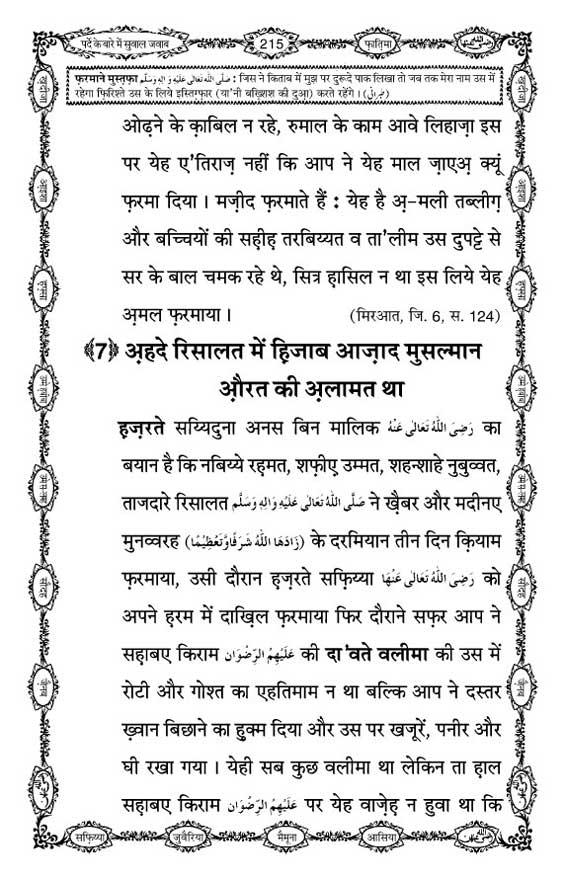 पर्दे के बारे में सुवाल जवाब 215 फ़ातिमा
फ़रमाने मुस्तफ़ा صَلَّى اللهُ تَعَالٰى عَلَيْهِ وَاٰلِهٖ وَسَلَّم : जिस ने किताब में मुझ पर दुरूदे पाक लिखा तो जब तक मेरा नाम उस में
रहेगा फ़िरिश्ते उस के लिये इस्तिग़्फ़ार (या'नी बख़्शिश की दुआ) करते रहेंगे। (طبرانی)
ओढ़ने के क़ाबिल न रहे, रुमाल के काम आवे लिहाज़ा इस
पर येह ए'तिराज़ नहीं कि आप ने येह माल ज़ाएअ़ क्यूं
फ़रमा दिया। मज़ीद फ़रमाते हैं : येह है अ़-मली तब्लीग़
और बच्चियों की सह़ीह़ तरबिय्यत व ता'लीम उस दुपट्टे से
सर के बाल चमक रहे थे, सित्र ह़ासिल न था इस लिये येह
अ़मल फ़रमाया। (मिरआत, जि. 6, स. 124)
﴾7﴿ अ़हदे रिसालत में ह़िजाब आज़ाद मुसल्मान
औ़रत की अ़लामत था
ह़ज़रते सय्यिदुना अनस बिन मालिक رَضِىَ اللهُ تَعَالٰى عَنْهُ का
बयान है कि नबिय्ये रह़मत, शफ़ीए़ उम्मत, शहन्शाहे नुबुव्वत,
ताजदारे रिसालत صَلَّى اللهُ تَعَالٰى عَلَيْهِ وَاٰلِهٖ وَسَلَّم ने ख़ैबर और मदीनए
मुनव्वरह (زَادَهَا اللهُ شَرَفًا وَّتَعْظِيْمًا) के दरमियान तीन दिन क़ियाम
फ़रमाया, उसी दौरान ह़ज़रते सफ़िय्या رَضِىَ اللهُ تَعَالٰى عَنْهَا को
अपने ह़रम में दाख़िल फ़रमाया फिर दौराने सफ़र आप ने
सह़ाबए किराम عَلَيْهِمُ الرِّضْوَان की दा'वते वलीमा की उस में
रोटी और गोश्त का एहतिमाम न था बल्कि आप ने दस्तर
ख़्वान बिछाने का हु़क्म दिया और उस पर खजूरें, पनीर और
घी रखा गया। येही सब कुछ वलीमा था लेकिन ता ह़ाल
सह़ाबए किराम عَلَيْهِمُ الرِّضْوَان पर येह वाज़ेह़ न हुवा था कि
सफ़िय्या जुवैरिया मैमूना आसिया